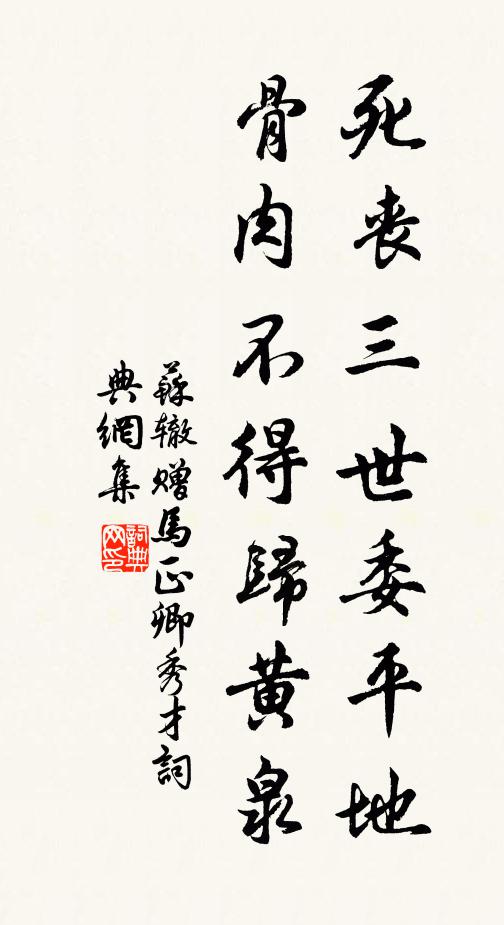 死喪三世委平地
骨肉不得歸黄泉
蘇辙赠馬正卿秀才詞
典網集
詞典
网印